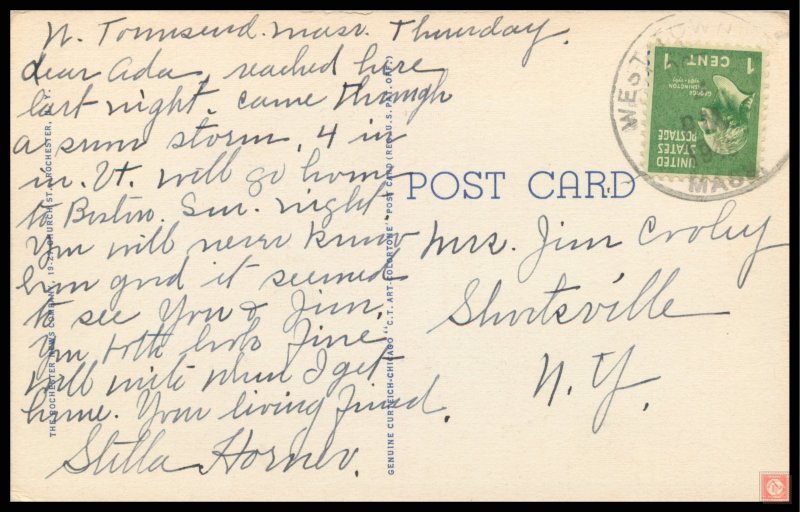 W. Townsend. Mass. Thursday.
Dear Ada, reached here
last night. came through
a snow storm, 4 in
in. Vt. will go home
to Boston. Sun. night
You will never know
how good it seemed
to see You & Jim.
You both look fine
will write when I get
home. Your loving friend.
Stella
POST CARD
Mrs. Jim
Shortsville
N. Y.
THE ROCHESTER NEWS COMPANY, CHURCH ST., ROCHESTER, N. Y.
GENUINE CURTEICH-CHICAGO "C.T. ART-COLORTONE" POST CARD (REG. U.S. PAT. OFF.)
UNITED
STATES
POSTAGE
GEORGE
WASHINGTON
1789-1797
1 CENT 1
WEST TOWNSEND
MASS.